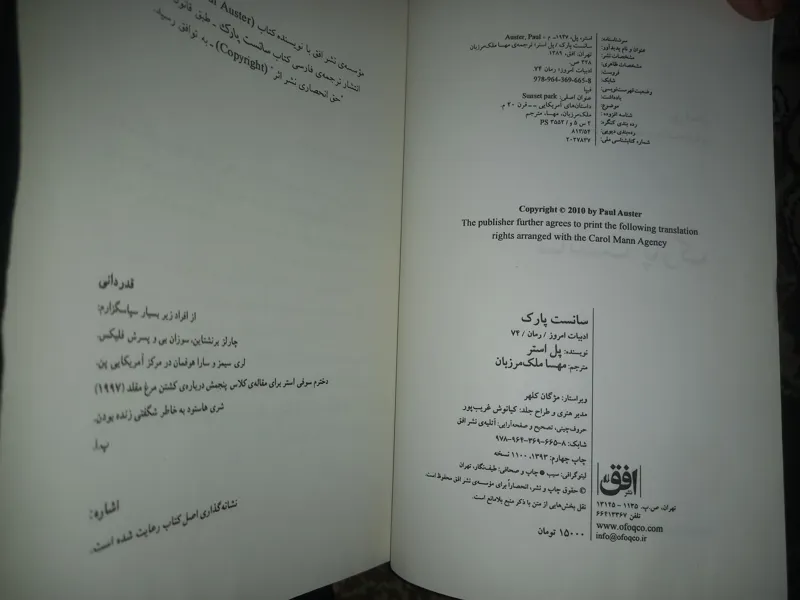 سرشناسه: استر، پل، ۱۹۴۷- م Auster, Paul -
عنوان و نام پدیدآور: سانست پارک / پل استر؛ ترجمه‌ی مهسا ملک‌مرزبان
مشخصات نشر: تهران: افق، ۱۳۸۹.
مشخصات ظاهری: ۳۲۸ ص.
فروست: ادبیات امروز؛ رمان ۷۴.
978-964-369-665-8
وضعیت فهرست‌نویسی: فیپا
یادداشت: عنوان اصلی: Sunset park
موضوع: داستان‌های آمریکایی -- قرن ۲۰ م.
شناسه افزوده: ملک‌مرزبان، مهسا، مترجم
رده بندی کنگره: PS ۳۵۵۲ / ۲ س ۵ و
رده‌بندی دیویی: ۸۱۳/۵۴
شماره کتابشناسی ملی: ۲۰۲۷۸۳۷
Copyright © 2010 by Paul Auster
The publisher further agrees to print the following translation
rights arranged with the Carol Mann Agency
سانست پارک
ادبیات امروز / رمان / ۷۴
نویسنده: پل استر
مترجم: مهسا ملک‌مرزبان
ویراستار: مژگان کلهر
مدیر هنری و طراح جلد: کیانوش غریب‌پور
حروف‌چینی، تصحیح و صفحه‌آرایی: آتلیه‌ی نشر افق
شابک: ۸-۶۶۵-۳۶۹-۹۶۴-۹۷۸
چاپ چهارم: ۱۳۹۳، ۱۱۰۰ نسخه
لیتوگرافی: سیب ● چاپ و صحافی: طیف‌نگار، تهران
© حقوق چاپ و نشر، انحصاراً برای مؤسسه‌ی نشر افق محفوظ است.
نقل بخش‌هایی از متن با ذکر منبع بلامانع است.
۱۵۰۰۰ تومان
نشر افق
تهران، ص.پ. ۱۱۳۵ - ۱۳۱۴۵
تلفن ۶۶۴۱۳۳۶۷
www.ofoqco.com
info@ofoqco.ir
مؤسسه‌ی نشر افق با نویسنده کتاب (Paul Auster)
انتشار ترجمه‌ی فارسی کتاب سانست پارک - طبق قانون
"حق انحصاری نشر اثر" (Copyright) - به توافق رسید.
قدردانی
از افراد زیر بسیار سپاسگزارم:
چارلز برنشتاین، سوزان بی و پسرش فلیکس.
لری سیمز و سارا هوفمان در مرکز آمریکایی پن.
دخترم سوفی استر برای مقاله‌ی کلاس پنجمش درباره‌ی کشتن مرغ مقلد (۱۹۹۷)
شری هاستود به خاطر شگفتی زنده بودن.
پ.ا.
اشاره:
نشانه‌گذاری اصل کتاب رعایت شده است.